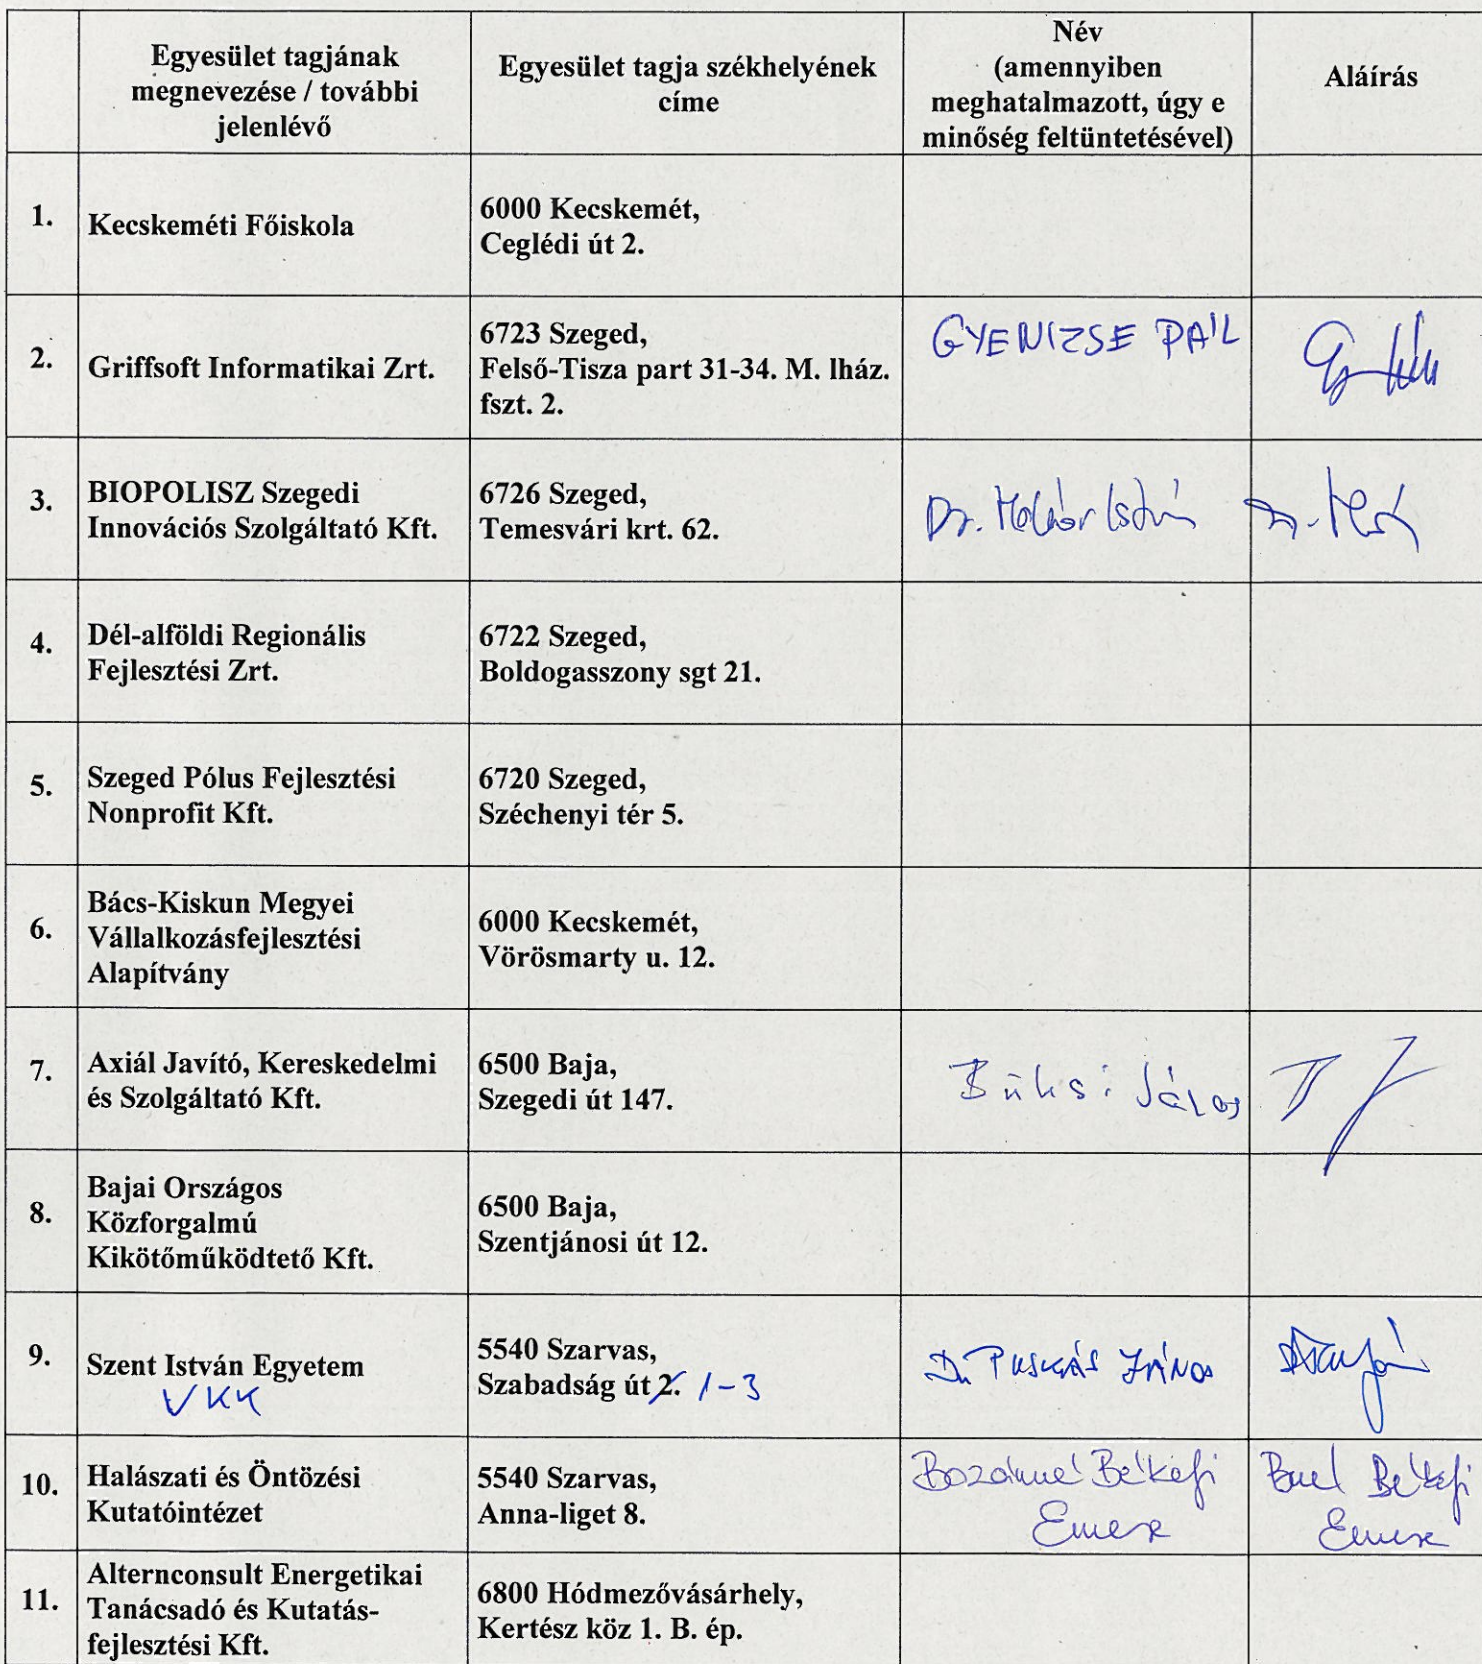 Egyesület tagjának
megnevezése / további
jelenlévő
Egyesület tagja székhelyének
címe
Név
(amennyiben
meghatalmazott, úgy e
minőség feltüntetésével)
Aláírás
1.
Kecskeméti Főiskola
6000 Kecskemét,
Ceglédi út 2.
2.
Griffsoft Informatikai Zrt.
6723 Szeged,
Felső-Tisza part 31-34. M. lház.
fszt. 2.
GYENIZSE PÁL
3.
BIOPOLISZ Szegedi
Innovációs Szolgáltató Kft.
6726 Szeged,
Temesvári krt. 62.
Dr. Molnár István
4.
Dél-alföldi Regionális
Fejlesztési Zrt.
6722 Szeged,
Boldogasszony sgt 21.
5.
Szeged Pólus Fejlesztési
Nonprofit Kft.
6720 Szeged,
Széchenyi tér 5.
6.
Bács-Kiskun Megyei
Vállalkozásfejlesztési
Alapítvány
6000 Kecskemét,
Vörösmarty u. 12.
7.
Axiál Javító, Kereskedelmi
és Szolgáltató Kft.
6500 Baja,
Szegedi út 147.
János
8.
Bajai Országos
Közforgalmú
Kikötőműködtető Kft.
6500 Baja,
Szentjánosi út 12.
9.
Szent István Egyetem
VKK
5540 Szarvas,
Szabadság út 2. 1-3
Dr Puskás János
10.
Halászati és Öntözési
Kutatóintézet
5540 Szarvas,
Anna-liget 8.
Bozánné Békefi
Emese
Békefi
Emese
11.
Alternconsult Energetikai
Tanácsadó és Kutatás-
fejlesztési Kft.
6800 Hódmezővásárhely,
Kertész köz 1. B. ép.